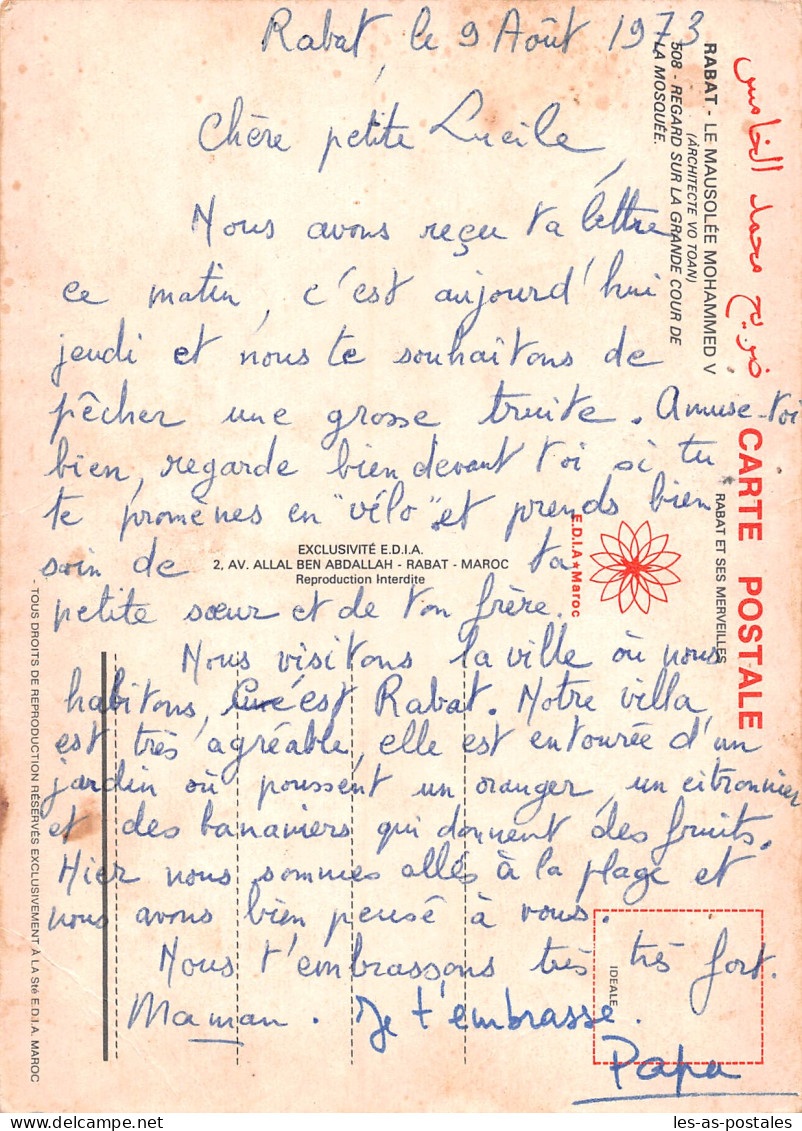 Rabat, le 9 Août 1973
Chère petite Lucile,
Nous avons reçu ta lettre
ce matin, c'est aujourd'hui
jeudi et nous te souhaitons de
pêcher une grosse truite. Amuse-toi
bien, regarde bien devant toi si tu
te promènes en "vélo" et prends bien
soin de ta
petite sœur et de ton frère.
Nous visitons la ville où nous
habitons, c'est Rabat. Notre villa
est très agréable, elle est entourée d'un
jardin où poussent un oranger, un citronnier
et des bananiers qui donnent des fruits.
Hier nous sommes allés à la plage et
nous avons bien pensé à vous.
Nous t'embrassons très très fort.
Maman. Je t'embrasse.
Papa
ضريح محمد الخامس
CARTE POSTALE
RABAT - LE MAUSOLÉE MOHAMMED V
(ARCHITECTE VO TOAN)
508 - REGARD SUR LA GRANDE COUR DE
LA MOSQUÉE.
RABAT ET SES MERVEILLES
E.D.I.A★Maroc
EXCLUSIVITÉ E.D.I.A.
2, AV. ALLAL BEN ABDALLAH - RABAT - MAROC
Reproduction Interdite
IDEALE
- TOUS DROITS DE REPRODUCTION RÉSERVÉS EXCLUSIVEMENT À LA Sté E.D.I.A. MAROC
les-as-postales